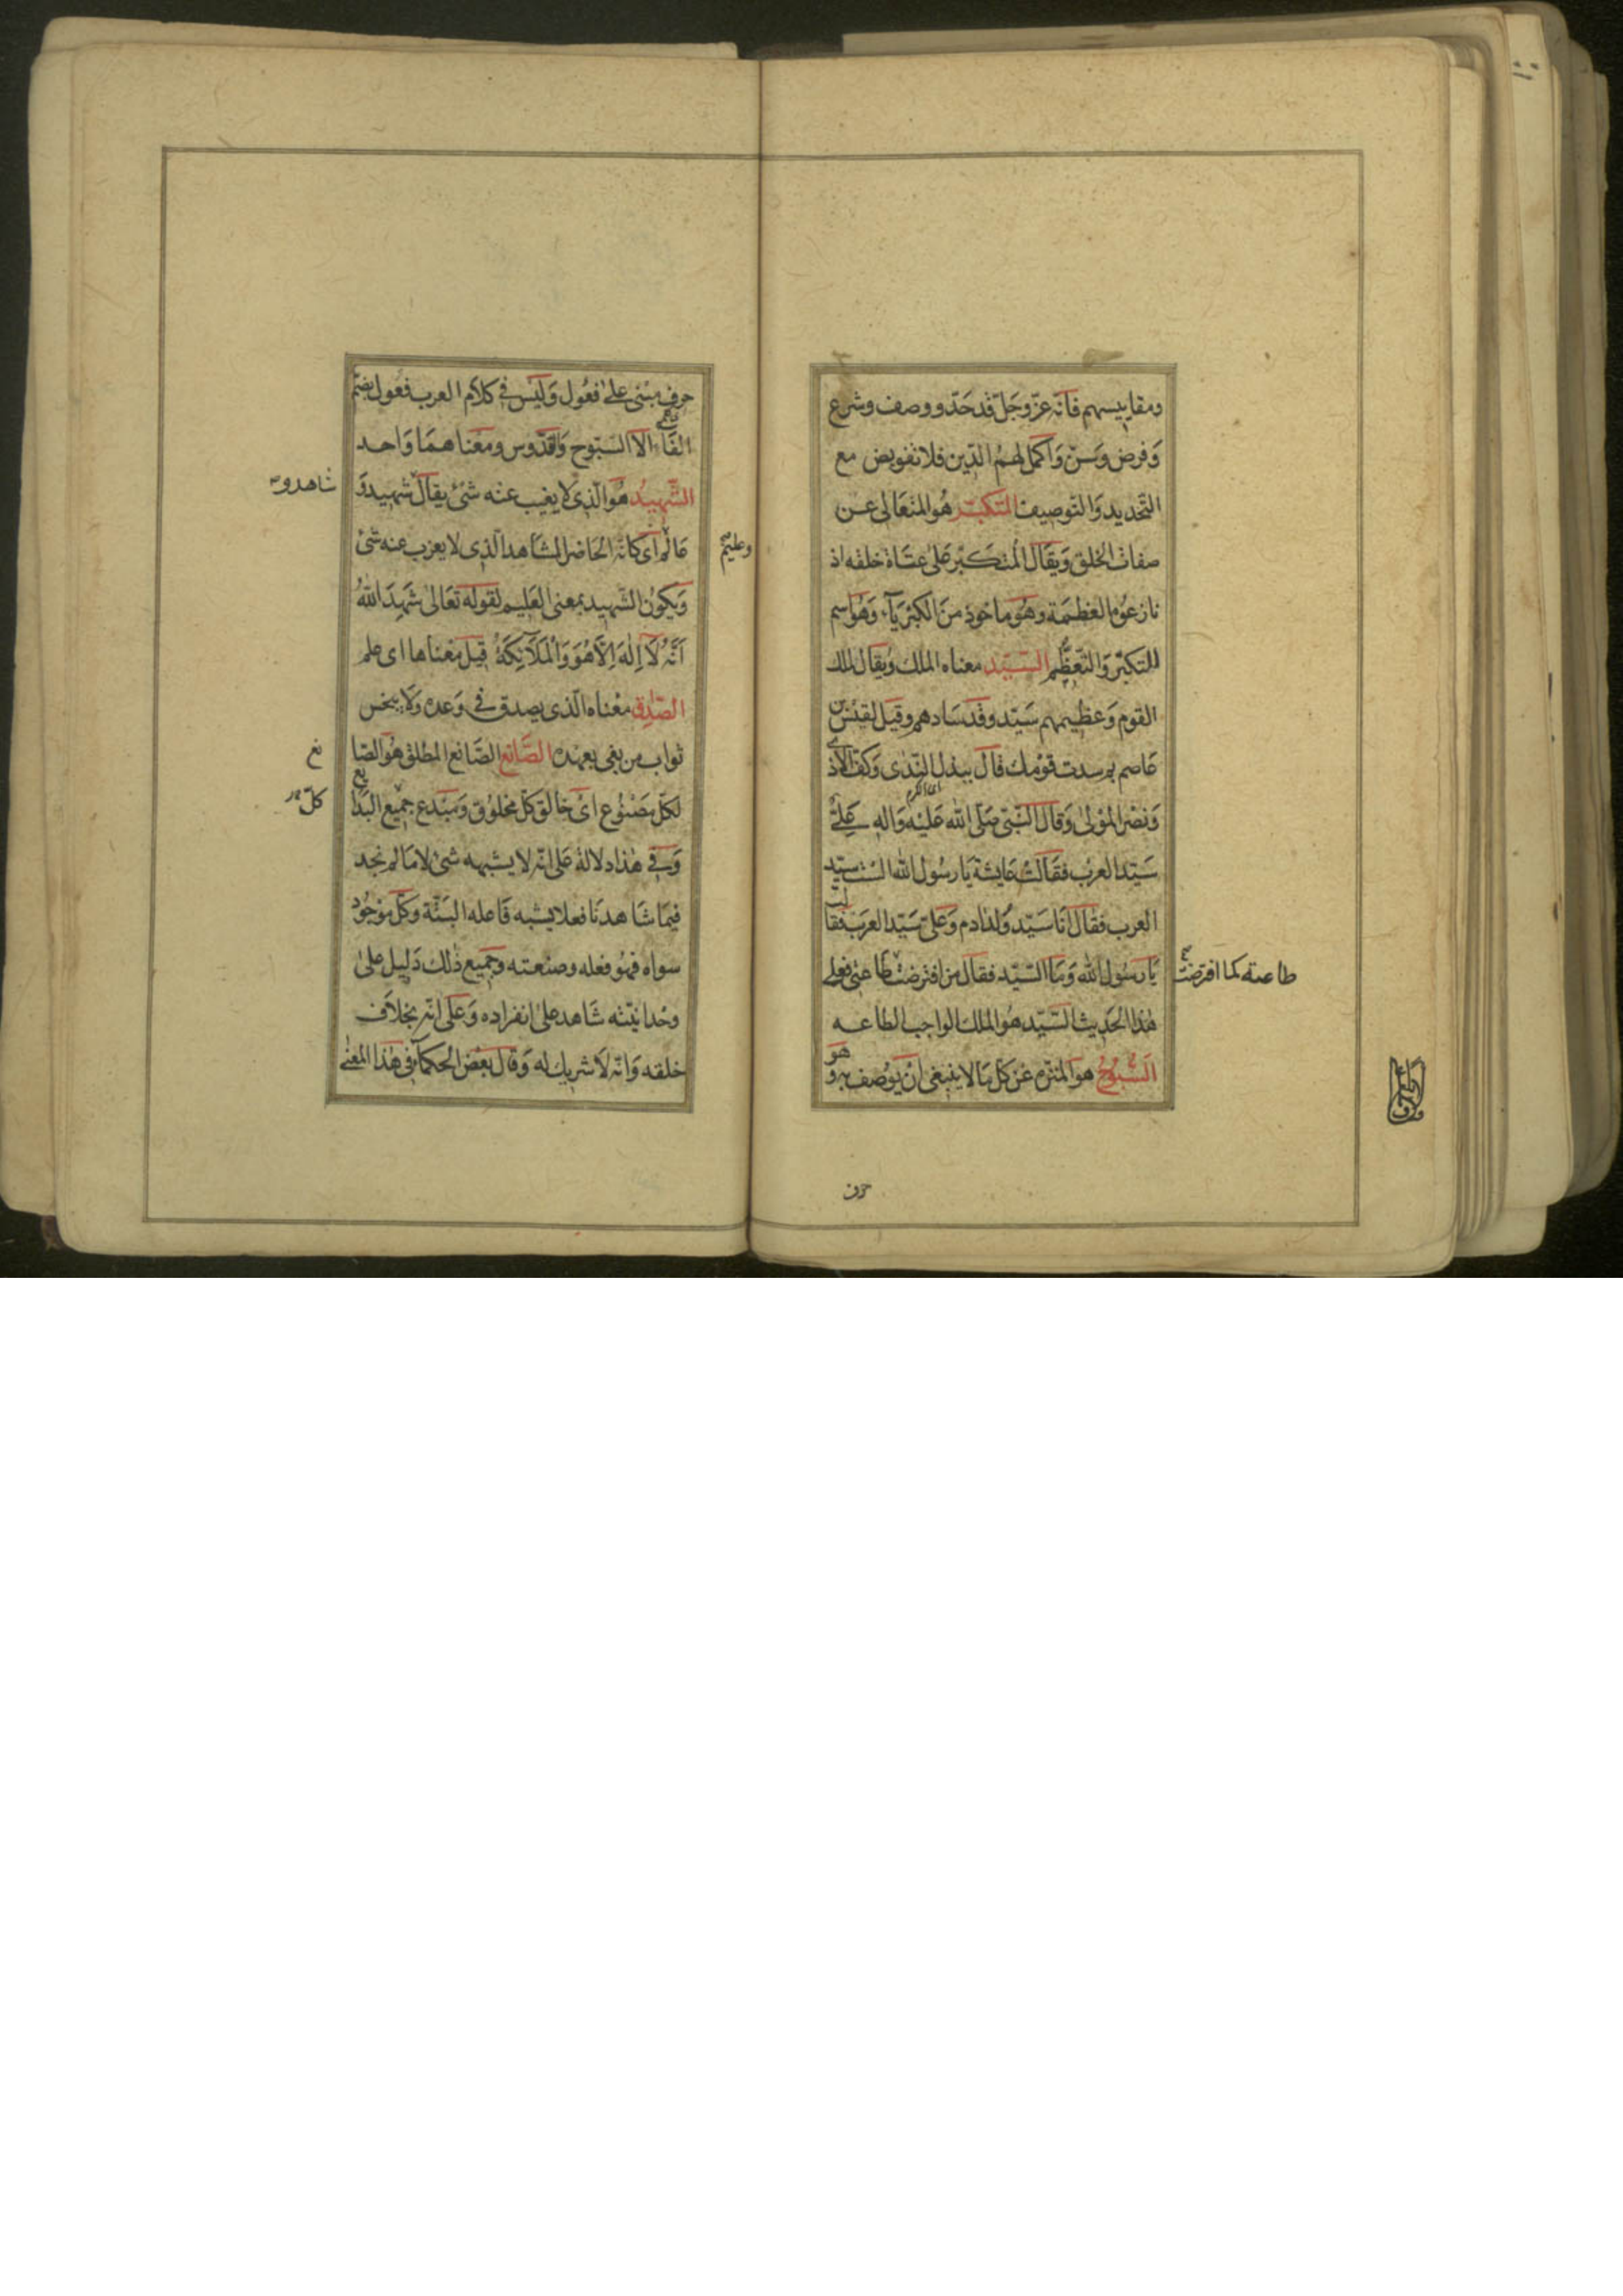 ومقاييسهم فانّه عزّ وجَلّ قد حَدّد ووصف وشرع
وَفرض وَسَنّ وَاكمل لهمُ الدّين فلا تفويض مع
التّحديد وَالتّوصيف المتكبّر هُو المتعَالى عن
صفات الخلق وَيقَال المُتكَبّر عَلى عتَاة خلقه اذ
نازعوُه العَظمَة وهُو ماخوذ منَ الكبْريَآء وَهوَ اسم
للتّكبّر وَالتّعظّم السيّد معناه الملك وَيقال لملك
القوم وَعظيمهم سَيّد وقَد سَادهم وقيل لقيس بن
عَاصم بم سدت قوْمك قال ببذل النّدٰى وَكفّ الاذى
اى الكرم
وَنصْر الموْلىٰ وَقال النّبىّ صَلّى الله عَليْه وَاله عَلىّ
سَيّد العرَب فقَالت عَايشة يَا رسُول الله الست سيّد
العرب فقَال انَا سَيّد وُلد ادم وَعلىّ سَيّد العرَب فقالت
يَا رَسُول الله وَمَا السّيّد فقال من افترضت طَاعته كما افترضت طَاعتى فعلى
هٰذا الحَديث السّيّد هُو الملك الواجب الطاعه
السّبُوّحُ هو المنزّه عَن كلّ مَا لا ينبغى انْ يوُصف به وهو
حرف
حرف مبْنى علىٰ فعُول وَليَس فى كلاَم العرب فعُول بضمّ
الفَاء الاّ السبّوح وَالقدّوس ومعْناهمَا وَاحد
الشّهيدُ هُوَ الّذى لاَ يغيب عنه شئ يقالُ شهيد وَ
شاهد و
عَالم وعليم اى كانّه الحَاضر الشاهد الّذى لا يعزب عنه شئ
وَيكوُن الشّهيد بمعنى العَليم لقوله تعَالىٰ شَهِدَ اللّٰهُ
اَنَّهُ لاَ اِلٰهَ اِلاَّ هُوَ وَالْمَلاَئِكَةُ قيل معْناها اى علم
الصّادق معْناه الّذى يصدق فى وَعده وَلاَ يبخس
ثواب من يفى بعهده الصَّانع الصّانع المطلق هُو الصّا
نع
لكلّ مصْنُوع اىْ خَالق كلّ مخلوُق وَمبْدع جميْع البَدايع
كلّ
وَفى هٰذا دلالة عَلى انّه لا يشبهه شئ لاَمَا لم نجد
فيمَا شَاهدنَا فعلا يشبه فَاعله البتّة وَكلّ موْجُود
سواه فهُو فعله وصنعته وَجَميع ذٰلك دَليل علىٰ
وحْدانيّته شَاهد علىٰ انفراده وَعَلى انّه بخلاَف
خلقه وَانّه لاَ شريك له وَقال بعْض الحكمآء فى هٰذا المعْنىٰ